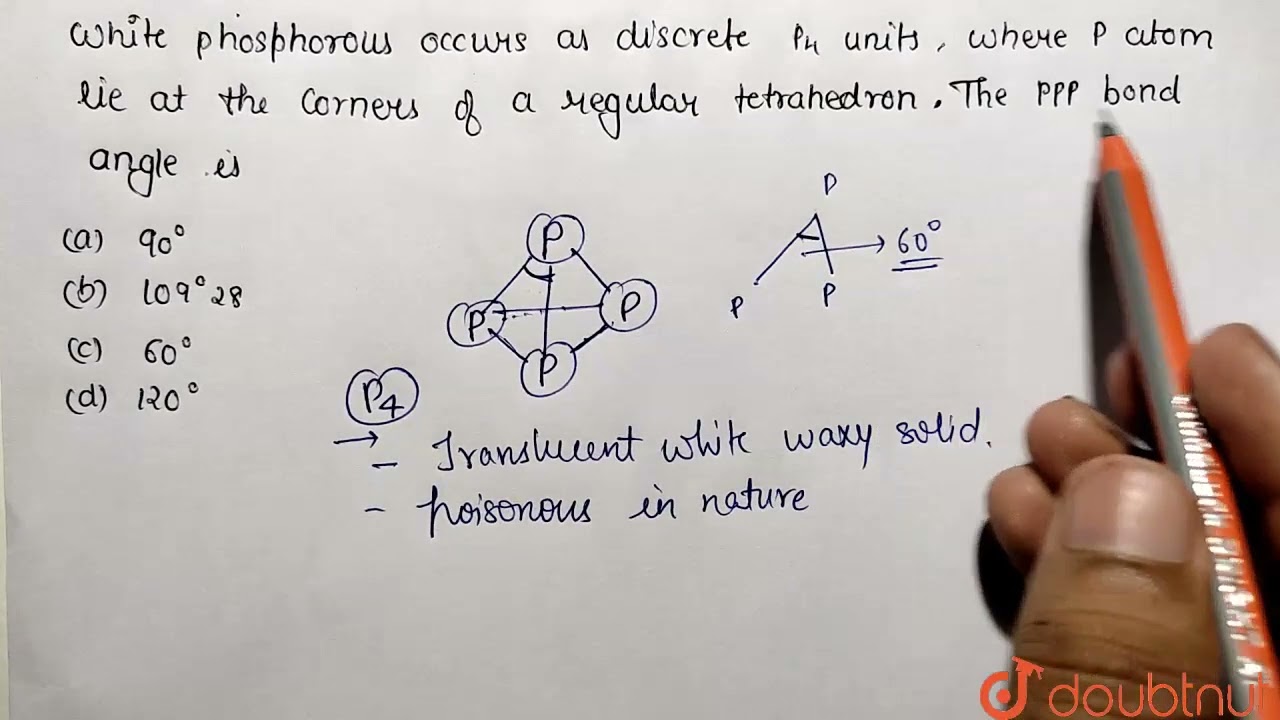 White phosphorous occurs as discrete P4 units, where P atom
lie at the corners of a regular tetrahedron. The PPP bond
angle is
(a) 90°
(b) 109°28
(c) 60°
(d) 120°
P
P
P
P
P
P
P
60°
P4
→ - Translucent white waxy solid.
- poisonous in nature
doubtnut